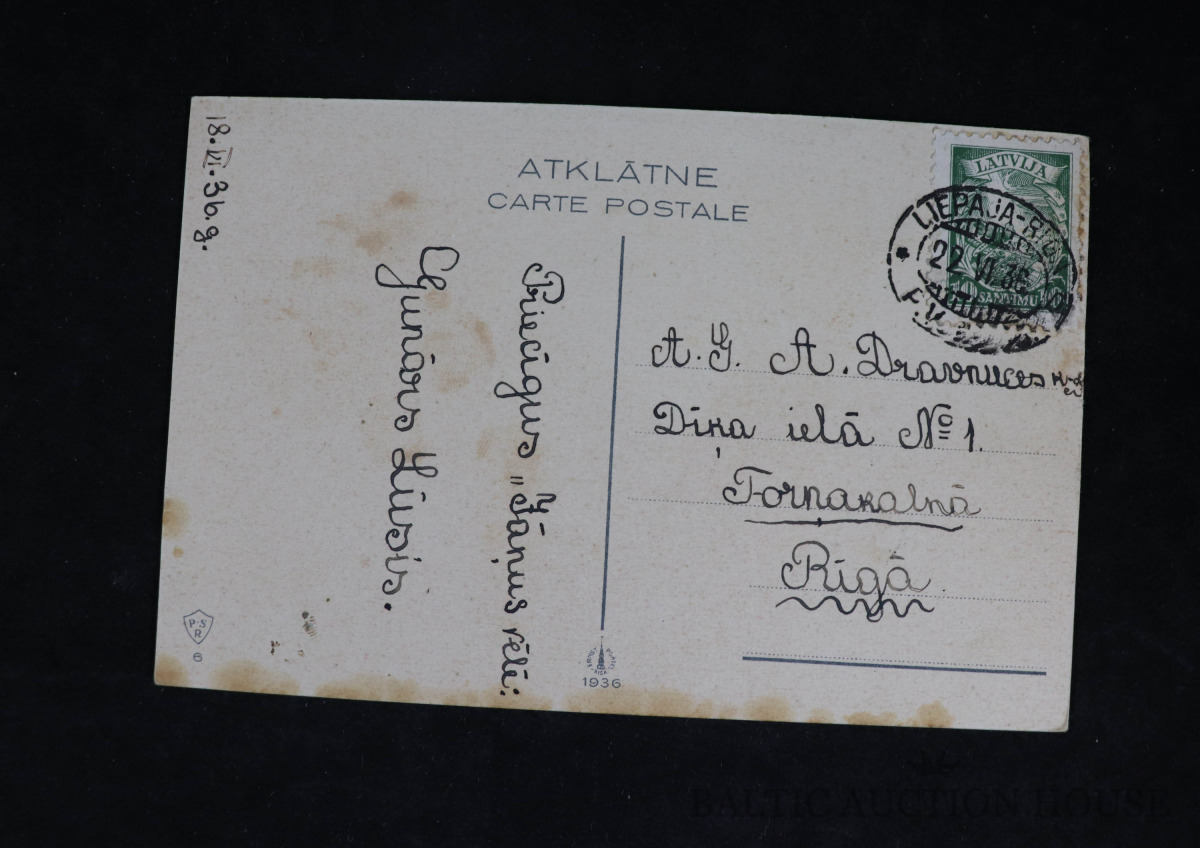 18.VI.36.g.
ATKLĀTNE
CARTE POSTALE
Priecīgus „Jāņus vēlē:
Gunārs Lūsis.
LATVIJA
SANTIMU
LIEPĀJA-RĪGA
22 VI 36
A.G. A. Dravnieces
Dīķa ielā № 1.
Torņakalnā
Rīgā
P.S
R
6
RIGA
1936
BALTIC AUCTION HOUSE